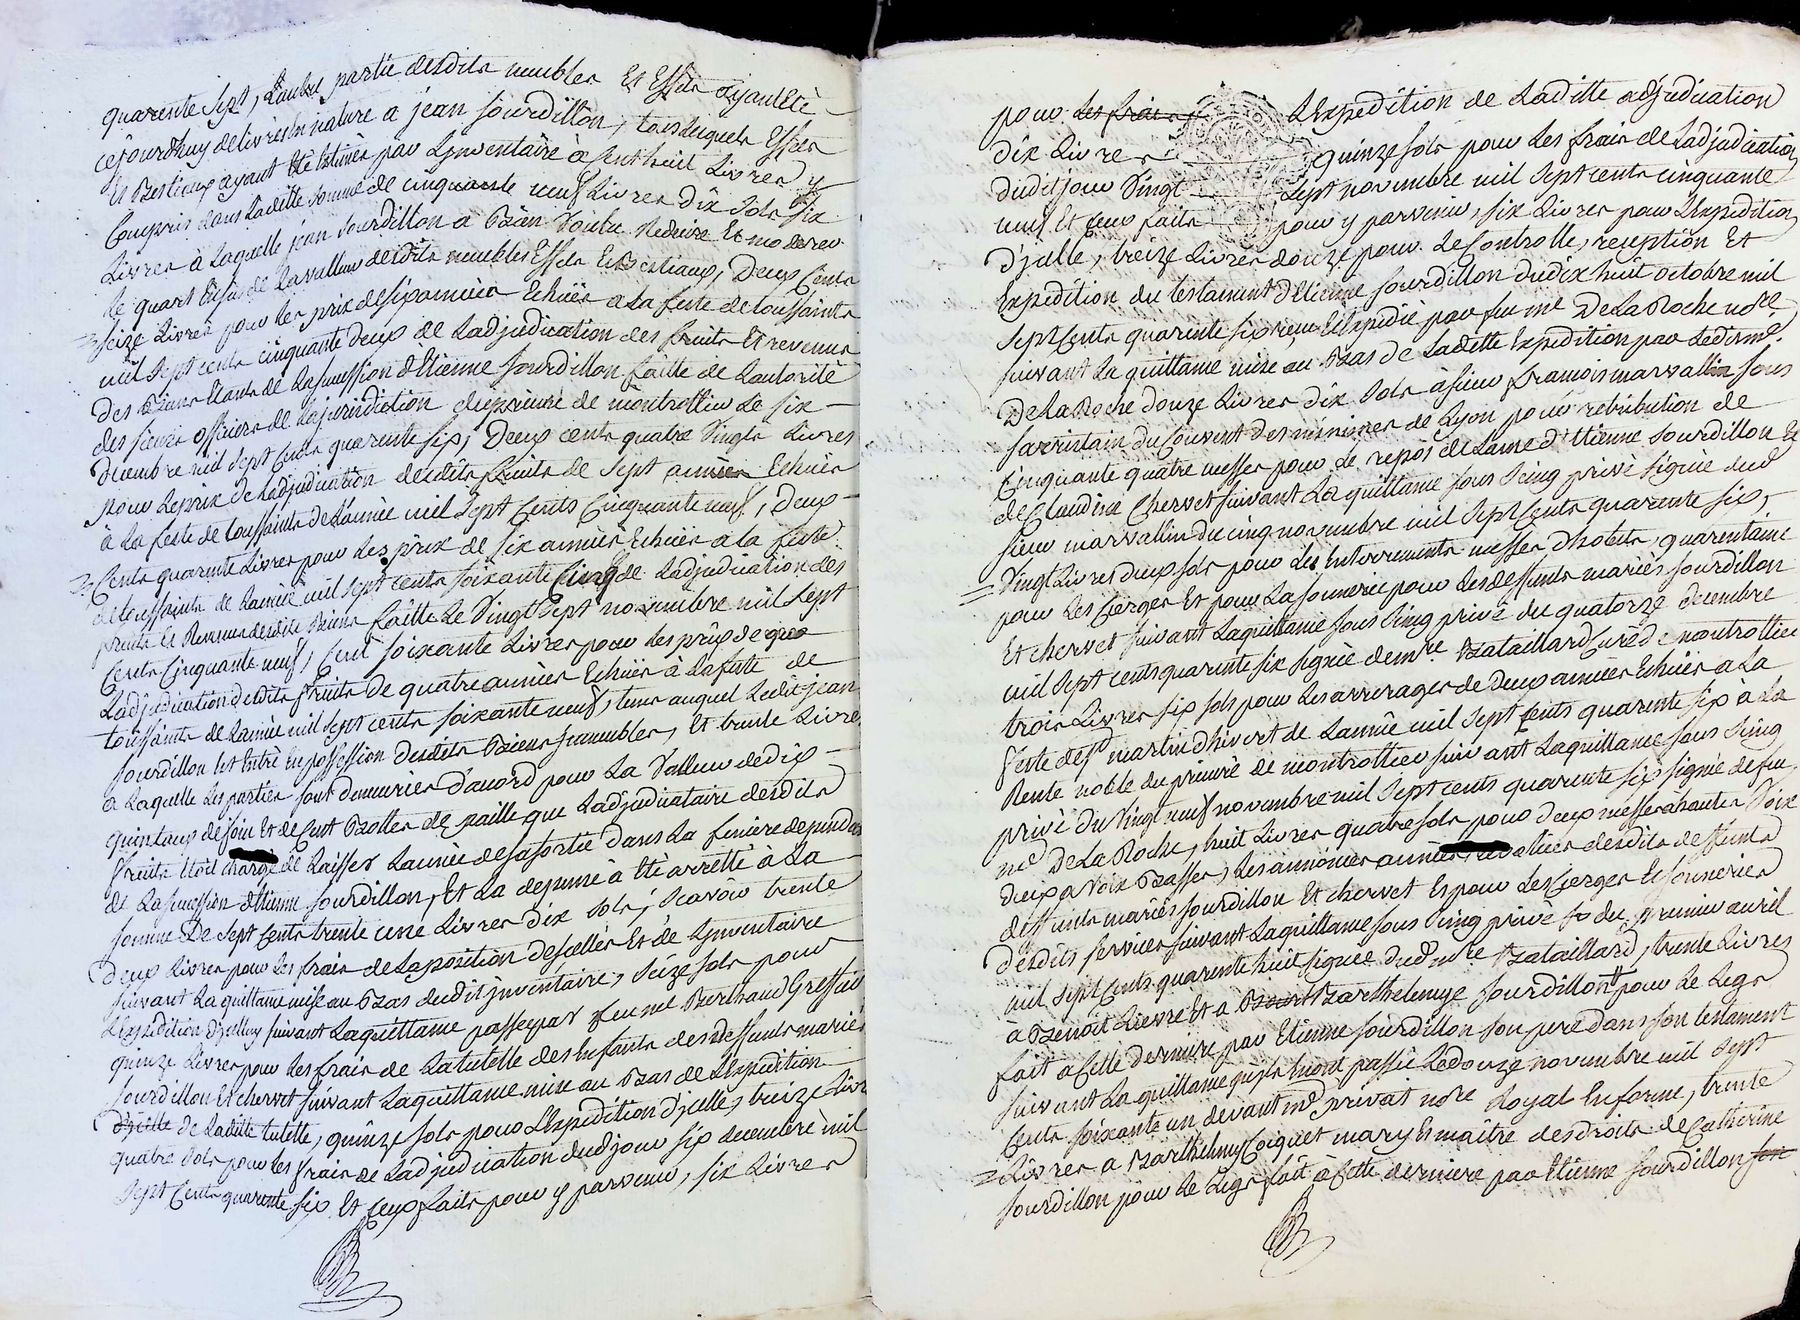 quarente sept, Lautre partie desdits meubles Et Effets ayant Eté
cejourdhuy delivrés En nature a jean sourdillon, tous lesquels Effets
Et Bestiaux ayant Eté Estimés par Lynventaire à Cent huit Livres y
Compris dans Laditte somme de cinquante neuf Livres dix sols six
Livres à Laquelle jean sourdillon a Bien Voulu Reduire Et moderer
le quart En sus de Lavalleur desdits meubles Effets Et Bestiaux, Deux Cents
seize Livres pour les prix de six années Echües a La feste de toussaints
mil sept cents cinquante deux de Ladjudication des fruits Et revenus
des Biens Etants de Lasucession d'Etienne sourdillon faitte de Lautorité
des sieurs officiers de Lajurisdiction du prieuré de montrottier Le six
decembre mil sept Cents quarente six, Deux cents quatre Vingts Livres
pour Leprix de Ladjudication desdits fruits de sept années Echües
à La feste de toussaints de Lannée mil sept Cents Cinquante neuf, Deux
Cents quarente Livres pour les prix de six années Echües a La feste
de toussaints de Lannée mil sept cents soixante Cinq de Ladjudication des
fruits Et Revenus desdits Biens faitte Le Vingt sept novembre mil sept
Cents Cinquante neuf, Cent soixante Livres pour les prix de
Ladjudication desdits fruits de quatre années Echües à Lafeste de
toussaints de Lannée mil sept cents soixante neuf, tems auquel Ledit jean
sourdillon Est Entré En possession desdits Biens jmmeubles, Et trente Livres
a Laquelle Les parties sont demeurées d'acord pour La Valleur de dix
quintaux de foin Et de Cent Bottes de paille que Ladjudicataire desdits
fruits Etoit chargé de Laisser Lannée de sa sortie dans La feniere dependante
de Lasucession d'Etienne sourdillon, Et La depense à Eté arrettée à La
somme De sept Cents trente une Livres dix sols, Scavoir trente
Deux Livres pour Les frais de Laposition des scellés Et de Lynventaire
suivant La quittance mise au Bas dudit jnventaire, seize sols pour
L'Expedition d'jcelluy suivant Laquittance passée par feu me Berthaud Greffier
quinze Livres pour Les frais de Latutelle des Enfants des deffunts mariés
sourdillon Et chervet suivant Laquittance mise au Bas de L'Expedition
d'jcelle de Laditte tutelle, quinze sols pour L'Expedition d'jcelle, treize Livres
quatre sols pour les frais de Ladjudication dudjour six decembre mil
sept Cents quarente six Et Ceux faits pour y parvenir, six Livres
pour Les frais L'Expedition de Laditte adjudication
dix Livres quinze sols pour Les frais de Ladjudication
dudit jour Vingt sept novembre mil sept cents cinquante
neuf Et Ceux faits pour y parvenir, six Livres pour L'Expedition
d'jcelle, treize Livres douze pour Le Controlle, reception Et
Expedition du testament d'Etienne sourdillon du dix huit octobre mil
sept Cents quarente six reçu Et Expedié par feu me De La Roche nore
suivant La quittance mise au Bas de Laditte Expedition par Ledit me
De La Roche douze Livres dix sols à sieur francois marvallin sous
sacristain du Couvent des minimes de Lyon pour retribution de
Cinquante quatre messes pour Le repos de Lame d'Etienne sourdillon Et
de Claudine Chervet suivant La quittance sous seing privé signée dud
sieur marvallin du cinq novembre mil sept Cents quarente six,
Vingt Livres deux sols pour les Enterrements messes d'hobits, quarentaine
pour Les Cierges Et pour La sonnerie pour Les deffunts mariés sourdillon
Et chervet suivant Laquittance sous seing privé du quatorze decembre
mil sept cents quarente six signée de mre Bataillard Curé de montrottier
trois Livres six sols pour Les arrerages de Deux années Echües a La
feste de st martin d'hivert de Lannée mil sept Cents quarente six à La
Rente noble du prieuré de montrottier suivant Laquittance sous seing
privé du Vingt neuf novembre mil sept cents quarente six signée de feu
me De La Roche, huit Livres quatre sols pour deux messes à hautes Voix
deux a Voix Basses, Les annonces années revolües desdits deffunts
deffunts mariés sourdillon Et chervet Et pour Les Cierges Et sonneries
desdits services suivant Laquittance sous seing privé du premier avril
mil sept Cents quarente huit signée dudt mre Bataillard, trente Livres
à Benoit Lievre Et a Barthelemye sourdillon pour Le Legs
fait a Cette derniere par Etienne sourdillon son pere dans son testament
suivant La quittance qu'jls En ont passée Le douze novembre mil sept
Cents soixante un devant me privat nore Royal En forme, trente
Livres a Barthelmy Coiquet mary Et maître des droits de Catherine
sourdillon pour Le Legs fait à Cette derniere par Etienne sourdillon son